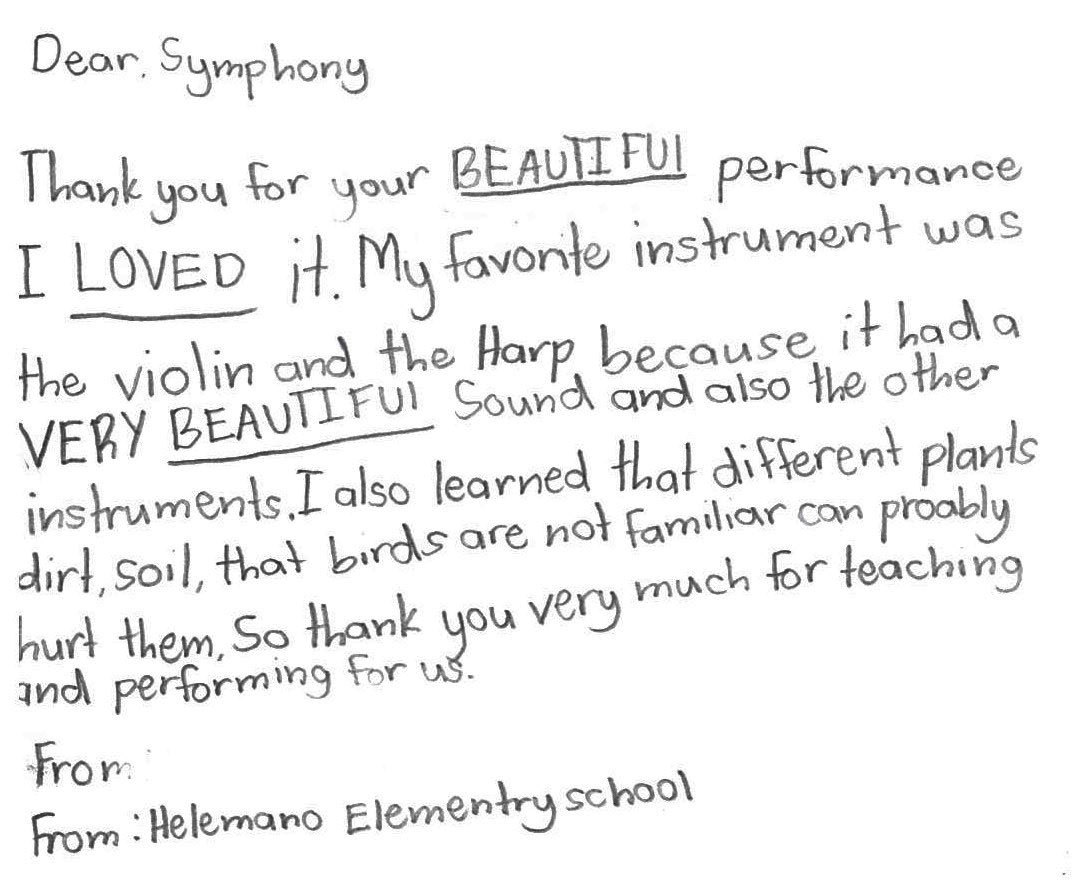 Dear. Symphony
Thank you for your BEAUTIFUl performance
I LOVED it. My favorite instrument was
the violin and the Harp because it had a
VERY BEAUTIFUl Sound and also the other
instruments. I also learned that different plants
dirt, soil, that birds are not familiar can proably
hurt them, So thank you very much for teaching
and performing for us.
From
From: Helemano Elementry school